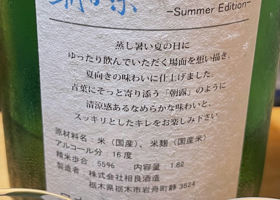 -Summer Edition-
蒸し暑い夏の日に
ゆったり飲んでいただく場面を想い描き、
夏向きの味わいに仕上げました。
直葉にそっと寄り添う「朝露」のように
清涼感あるなめらかな味わいと、
スッキリとしたキレをお楽しみ下さい
原材料名：米（国産）、米麹（国産米）
アルコール分：16度
精米歩合：55% 内容量：1.8ℓ
製造者：株式会社相良酒造
栃木県栃木市岩舟町静3624